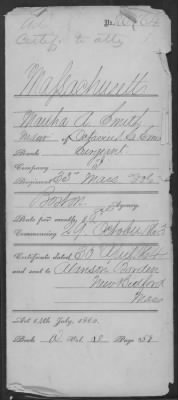 Certif. to atty
Massachusetts
Martha A. Smith
Widow of
Rank Sergeant
Company
Regiment 3d" Mass Vols
Boston Agency
Rate per month, 8
Commencing 29 October 1863
Certificate dated 30 April 1864
and sent to Alanson Borden
New Bedford
Mass
Act 14th July, 1862.
Book Vol. Page